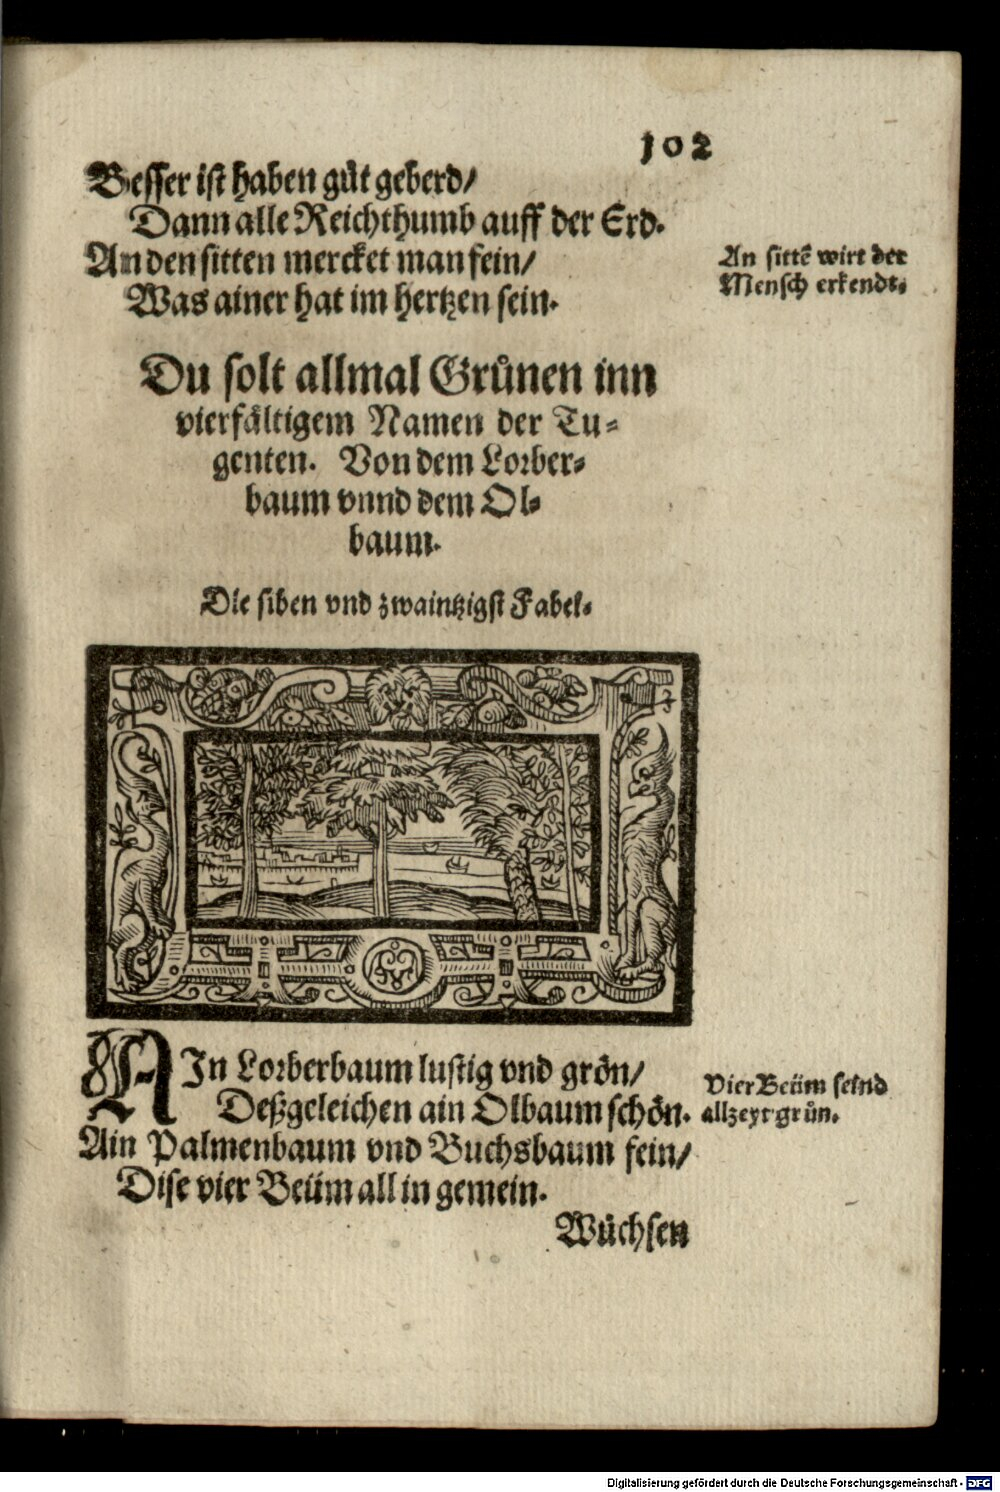 102
Besser ist haben gůt geberd/
Dann alle Reichthumb auff der Erd.
An den sitten mercket man fein/
Was ainer hat im hertzen sein.
An sittẽ wirt der
Mensch erkendt.
Du solt allmal Grůnen inn
vierfåltigem Namen der Tu-
genten. Von dem Lorber-
baum vnnd dem Ol-
baum.
Die siben vnd zwaintzigst Fabel.
AIn Lorberbaum lustig vnd grön/
Deßgeleichen ain Olbaum schön.
Ain Palmenbaum vnd Buchsbaum fein/
Dise vier Beüm all in gemein.
Vier Beüm seind
allzeyt grün.
Wüchsen
Digitalisierung gefördert durch die Deutsche Forschungsgemeinschaft - DFG